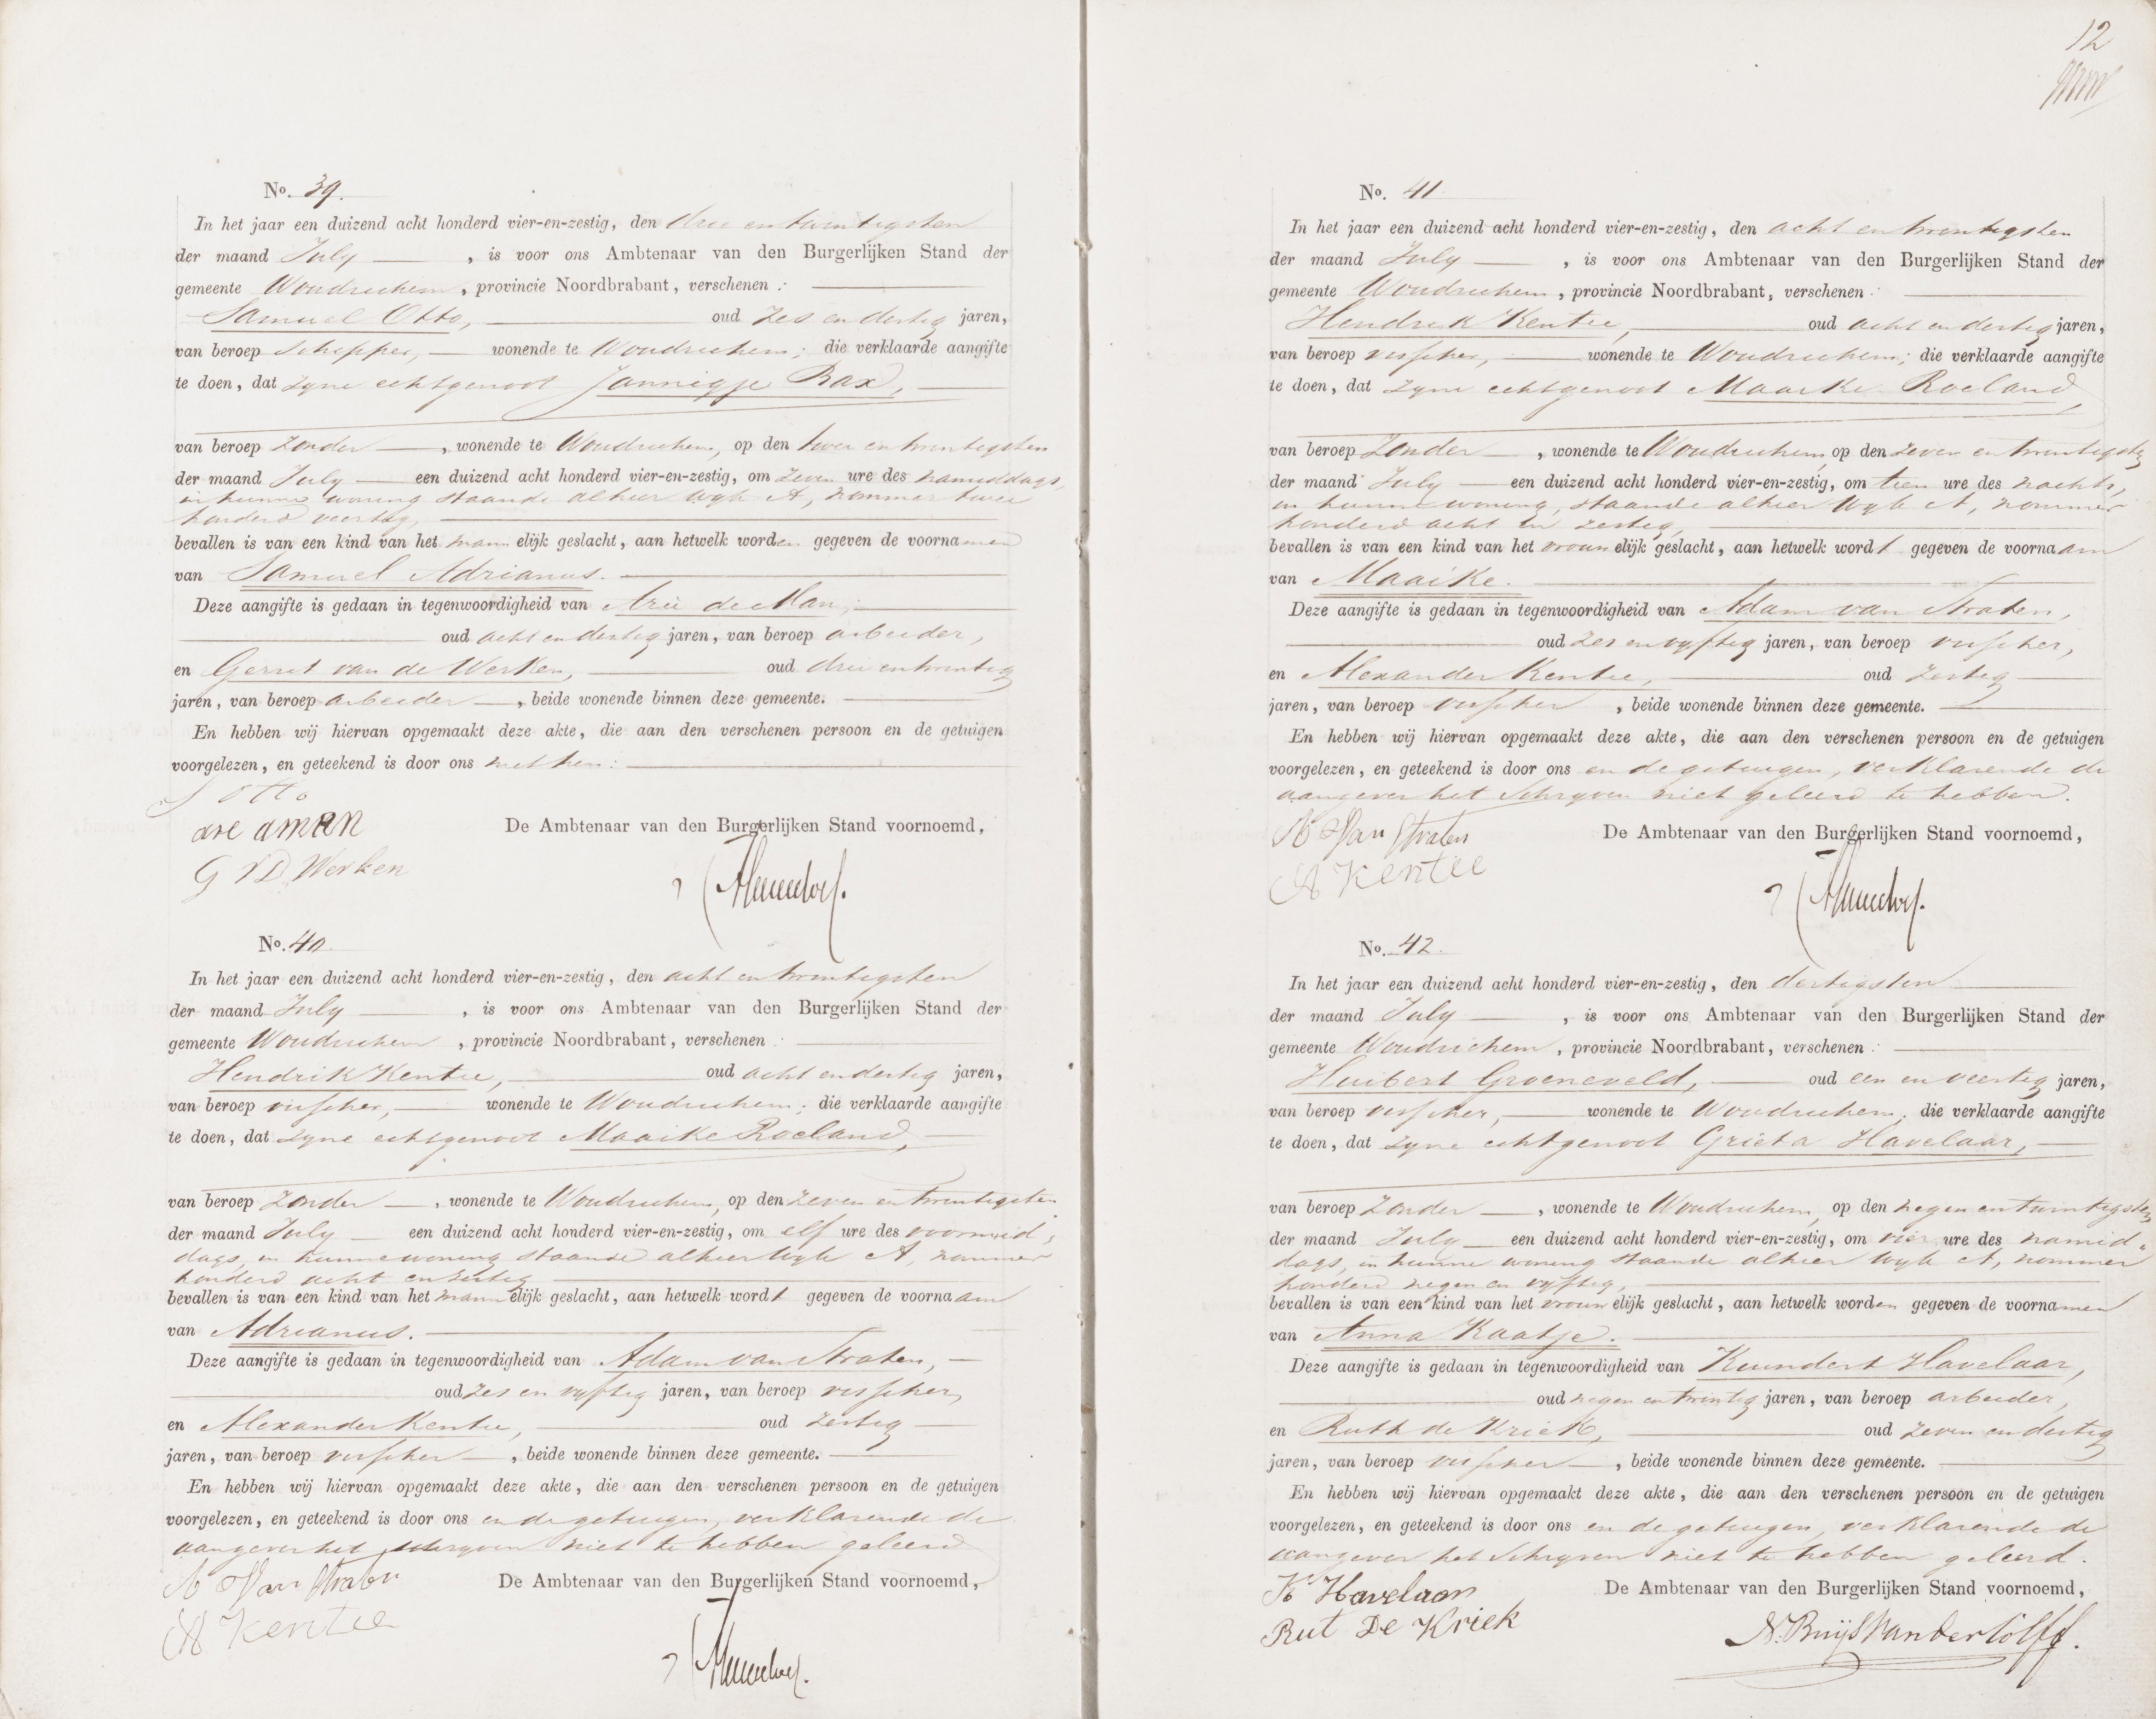 12
No. 39.
In het jaar een duizend acht honderd vier-en-zestig, den drie en twintigsten
der maand July, is voor ons Ambtenaar van den Burgerlijken Stand der
gemeente Woudrichem, provincie Noordbrabant, verschenen:
Samuel Otto, oud zes en dertig jaren,
van beroep schipper, wonende te Woudrichem; die verklaarde aangifte
te doen, dat zyne echtgenoot Jannigje Bax,
van beroep zonder, wonende te Woudrichem, op den twee en twintigsten
der maand July een duizend acht honderd vier-en-zestig, om zeven ure des namiddags,
in hunne woning staande alhier wyk A, nommer twee
honderd veertig,
bevallen is van een kind van het mannelijk geslacht, aan hetwelk worden gegeven de voornamen
van Samuel Adrianus.
Deze aangifte is gedaan in tegenwoordigheid van Arie de Man,
oud acht en dertig jaren, van beroep arbeider,
en Gerrit van de Werken, oud drie en twintig
jaren, van beroep arbeider, beide wonende binnen deze gemeente.
En hebben wij hiervan opgemaakt deze akte, die aan den verschenen persoon en de getuigen
voorgelezen, en geteekend is door ons met hen:
S otto
are aman
G VD Werken
De Ambtenaar van den Burgerlijken Stand voornoemd,
No. 40.
In het jaar een duizend acht honderd vier-en-zestig, den acht en twintigsten
der maand July, is voor ons Ambtenaar van den Burgerlijken Stand der
gemeente Woudrichem, provincie Noordbrabant, verschenen:
Hendrik Kentie, oud acht en dertig jaren,
van beroep visscher, wonende te Woudrichem; die verklaarde aangifte
te doen, dat zyne echtgenoot Maaike Roeland,
van beroep zonder, wonende te Woudrichem, op den zeven en twintigsten
der maand July een duizend acht honderd vier-en-zestig, om elf ure des voormid-
dags, in hunne woning staande alhier wyk A, nommer
honderd acht en zestig
bevallen is van een kind van het mannelijk geslacht, aan hetwelk wordt gegeven de voornaam
van Adrianus.
Deze aangifte is gedaan in tegenwoordigheid van Adam van Straten,
oud zes en vyftig jaren, van beroep visscher,
en Alexander Kentie, oud zestig
jaren, van beroep visscher, beide wonende binnen deze gemeente.
En hebben wij hiervan opgemaakt deze akte, die aan den verschenen persoon en de getuigen
voorgelezen, en geteekend is door ons en de getuigen, verklarende de
aangever het schryven niet te hebben geleerd
A Van Straten
A Kentie
De Ambtenaar van den Burgerlijken Stand voornoemd,
No. 41
In het jaar een duizend acht honderd vier-en-zestig, den acht en twintigsten
der maand July, is voor ons Ambtenaar van den Burgerlijken Stand der
gemeente Woudrichem, provincie Noordbrabant, verschenen:
Hendrik Kentie, oud acht en dertig jaren,
van beroep visscher, wonende te Woudrichem; die verklaarde aangifte
te doen, dat zyne echtgenoot Maaike Roeland,
van beroep zonder, wonende te Woudrichem, op den zeven en twintigsten
der maand July een duizend acht honderd vier-en-zestig, om tien ure des nachts,
in hunne woning, staande alhier wyk A, nommer
honderd acht en zestig,
bevallen is van een kind van het vrouwelijk geslacht, aan hetwelk wordt gegeven de voornaam
van Maaike.
Deze aangifte is gedaan in tegenwoordigheid van Adam van Straten,
oud zes en vyftig jaren, van beroep visscher,
en Alexander Kentie, oud zestig
jaren, van beroep visscher, beide wonende binnen deze gemeente.
En hebben wij hiervan opgemaakt deze akte, die aan den verschenen persoon en de getuigen
voorgelezen, en geteekend is door ons en de getuigen, verklarende de
aangever het schryven niet geleerd te hebben.
A Van Straten
A Kentie
De Ambtenaar van den Burgerlijken Stand voornoemd,
No. 42.
In het jaar een duizend acht honderd vier-en-zestig, den dertigsten
der maand July, is voor ons Ambtenaar van den Burgerlijken Stand der
gemeente Woudrichem, provincie Noordbrabant, verschenen:
Huibert Groeneveld, oud een en veertig jaren,
van beroep visscher, wonende te Woudrichem; die verklaarde aangifte
te doen, dat zyne echtgenoot Grieta Havelaar,
van beroep zonder, wonende te Woudrichem, op den negen en twintigsten
der maand July een duizend acht honderd vier-en-zestig, om vier ure des namid-
dags, in hunne woning staande alhier wyk A, nommer
honderd negen en vyftig,
bevallen is van een kind van het vrouwelijk geslacht, aan hetwelk worden gegeven de voornamen
van Anna Kaatje.
Deze aangifte is gedaan in tegenwoordigheid van Kuundert Havelaar,
oud negen en twintig jaren, van beroep arbeider,
en Ruth de Kriek, oud zeven en dertig
jaren, van beroep visscher, beide wonende binnen deze gemeente.
En hebben wij hiervan opgemaakt deze akte, die aan den verschenen persoon en de getuigen
voorgelezen, en geteekend is door ons en de getuigen, verklarende de
aangever het schryven niet te hebben geleerd.
K Havelaar
Rut De Kriek
De Ambtenaar van den Burgerlijken Stand voornoemd,